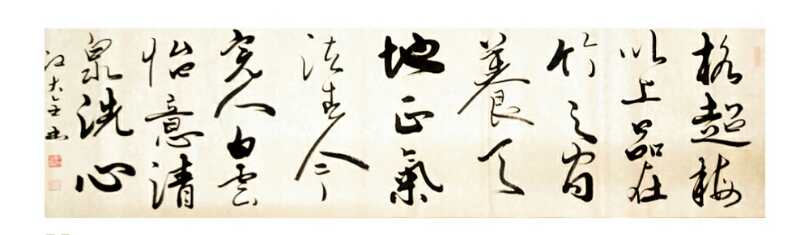 格超梅
以上品在
竹之間
養天
地正氣
法古今
完人白雲
怡意清
泉洗心